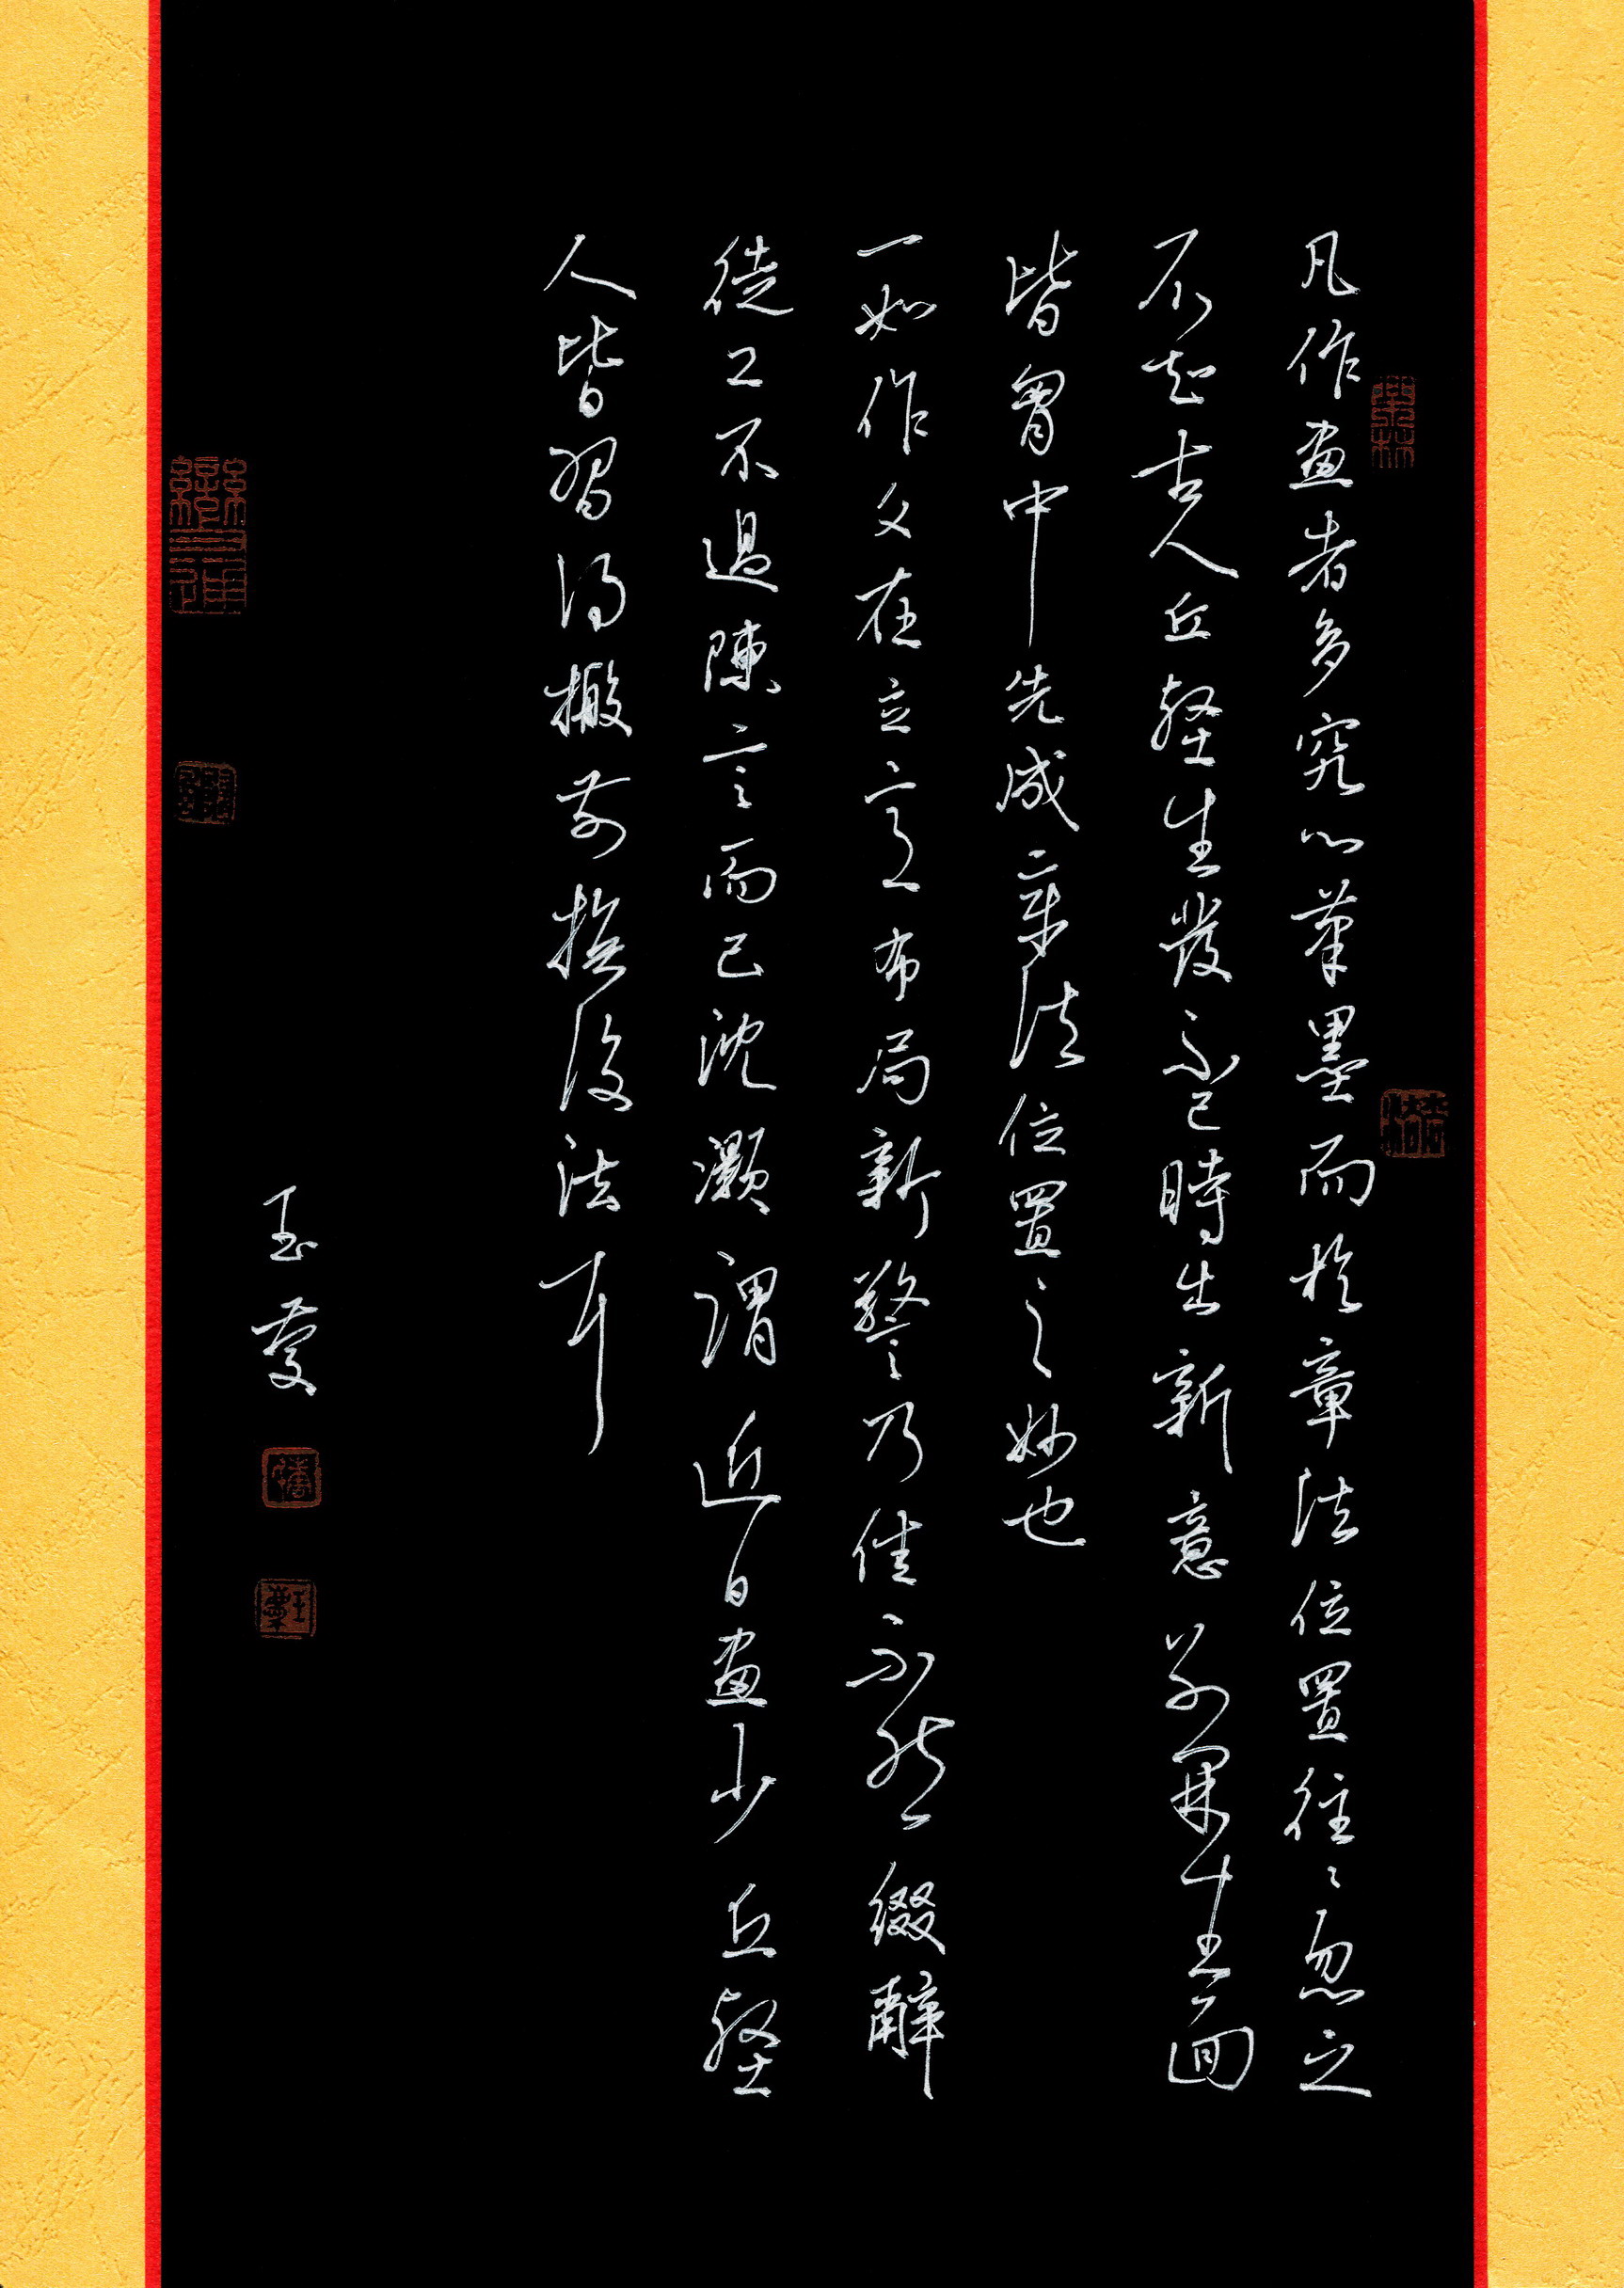 凡作畫者多究心筆墨而於章法位置往〻忽之
不知古人丘壑生發不已時出新意別開生面
皆胷中先成章法位置之妙也
一如作文在立意布局新警乃佳不然綴辭
徒工不過陳言而已沈灝謂近日畫少丘壑
人皆習得搬前換後法耳
玉慶